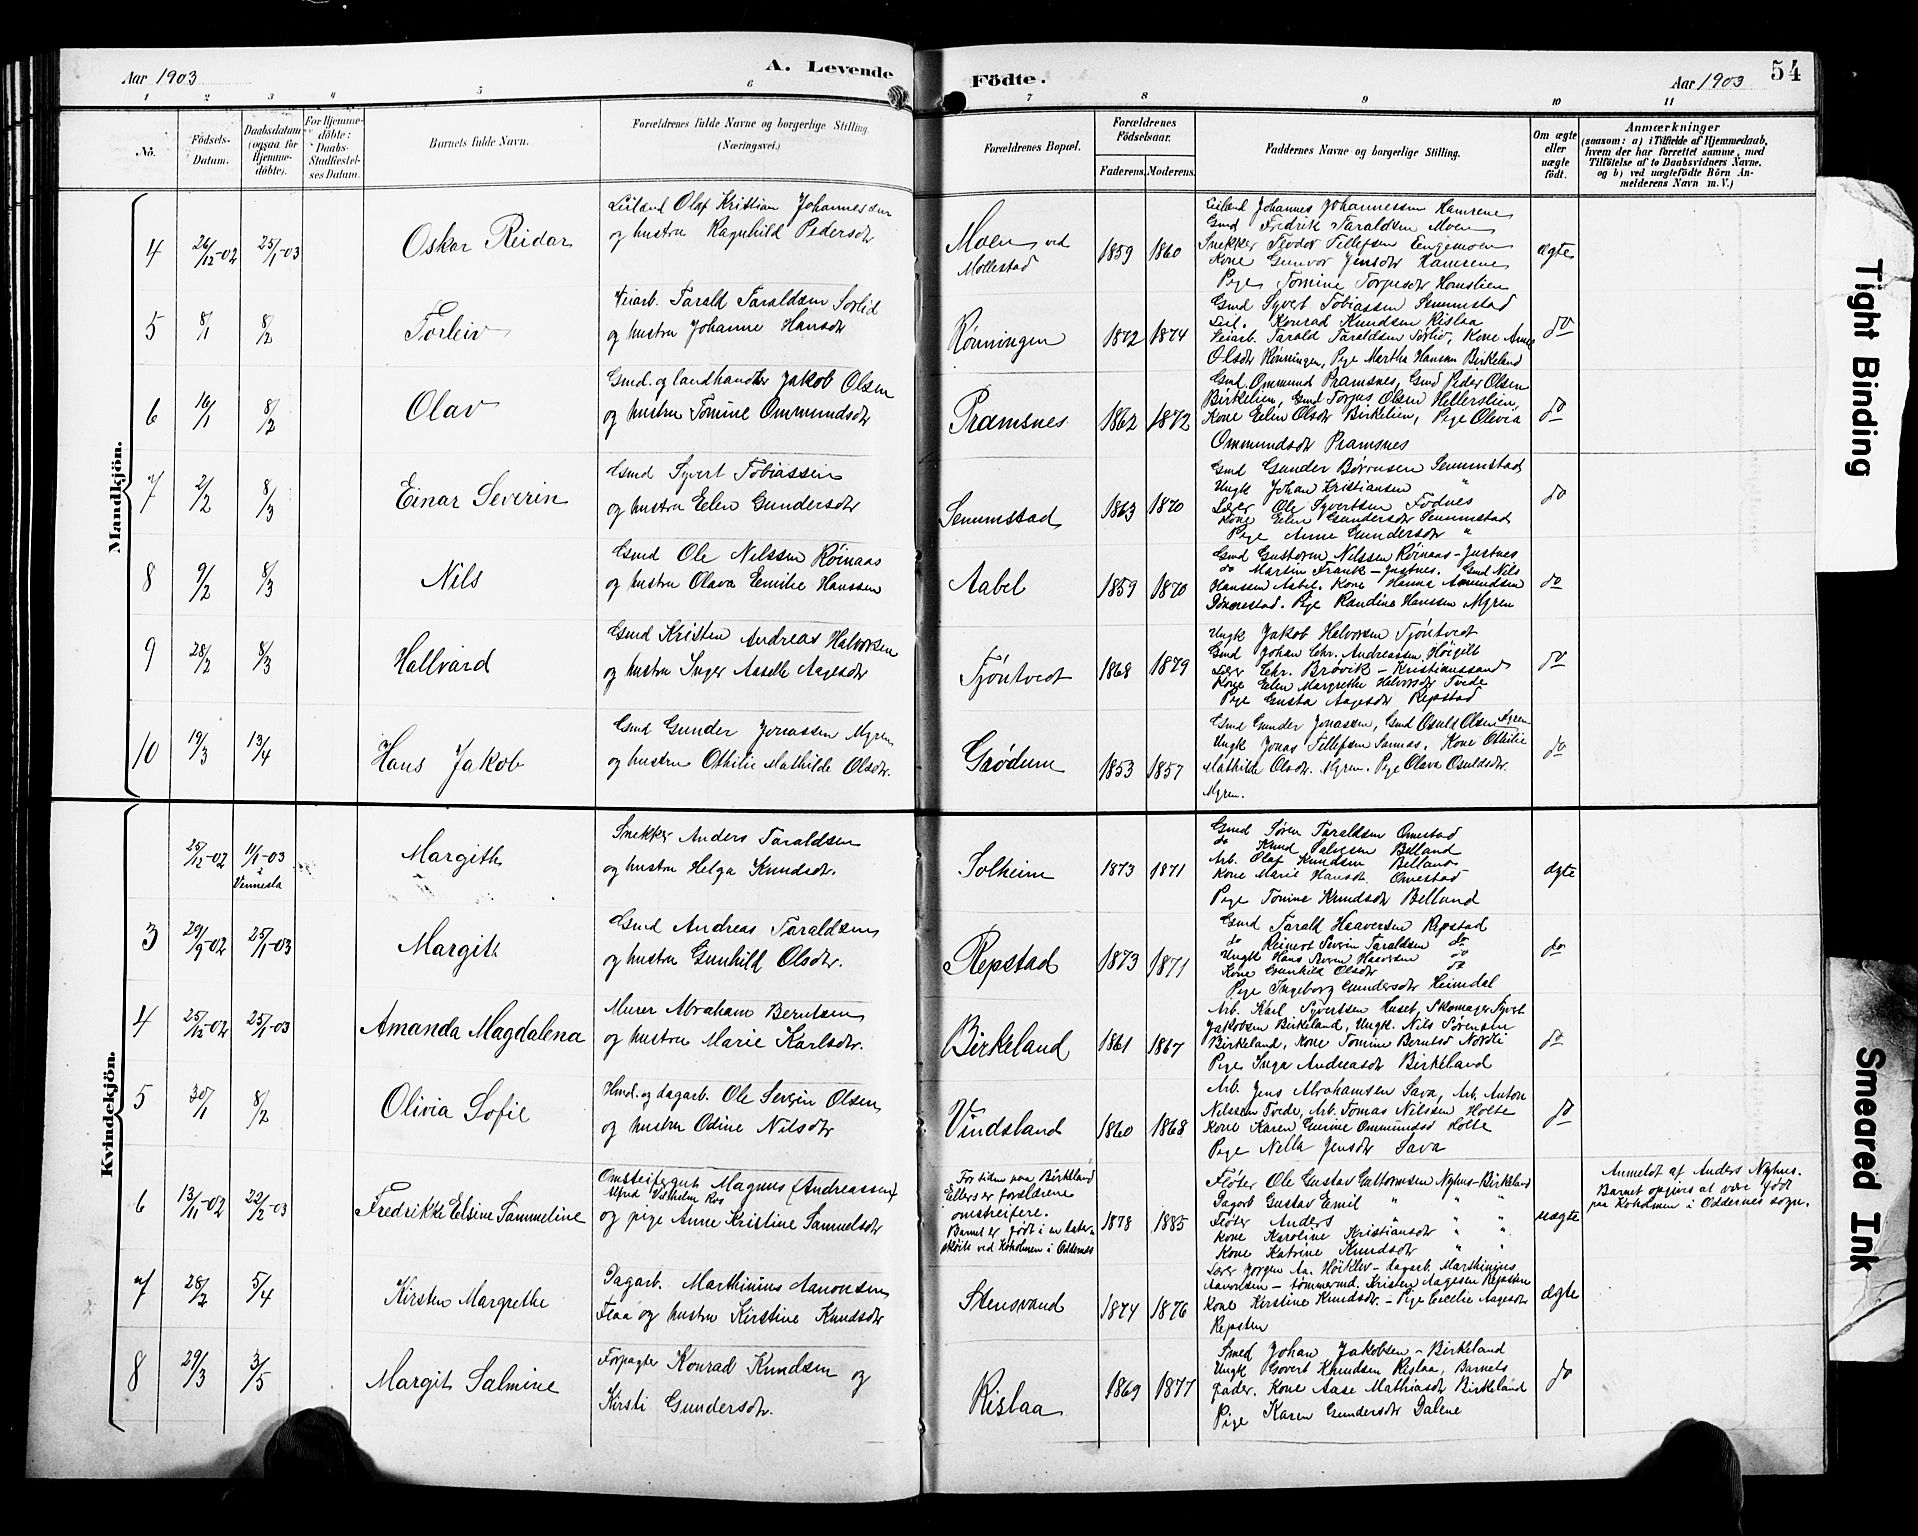 Aar 1903
A. Levende
Födte.
Aar 1903
54
1 2 3 4 5 6 7 8 9 10 11
No.
Födsels-Datum.
Daabsdatum (ogsaa for Hjemmedöbte).
For Hjemmedöbte: Daabs-Stadfæstelses Datum.
Barnets fulde Navn.
Forældrenes fulde Navne og borgerlige Stilling. (Næringsvei.)
Forældrenes Bopæl.
Forældrenes Födselsaar.
Faderens.
Moderens.
Faddernes Navne og borgerlige Stilling.
Om ægte eller uægte födt.
Anmærkninger
(saasom: a) i Tilfælde af Hjemmedaab, hvem der har forrettet samme, med Tilföielse af to Daabsvidners Navne, og b) ved uægtefödte Börn Anmelderens Navn m. V.)
Mandkjön.
4 26/12-02 25/1-03 Oskar Reidar
Leilænd Olaf Kristian Johannessen
og hustru Ragnhild Pedersdtr
Moen ved
Mollestad
1859 1860
Leilænd Johannes Johannessen Hamrene
Gmd Fredrik Taraldsen Moen
Snekker Teodor Tellefsen Engemoen
Kone Gunvor Jensdtr Hamrene
Pige Tomine Torjusdtr Honslien
ægte
5 8/1 8/2 Torleiv
Veiarb. Tarald Taraldsen Sorlid
og hustru Johanne Hansdtr
Rønningen
1872 1874
Gmd Syvert Tobiassen Senumstad
Leil. Konrad Knudsen Rislaa
Veiarb. Tarald Taraldsen Sorlid, Kone Anne
Olsdtr Rønningen, Pige Martha Hansen Birkeland
do
6 16/1 8/2 Olav
Gmd. og landhandler Jakob Olsen
og hustru Tomine Ommundsdtr
Pramsnes
1862 1872
Gmd. Ommund Pramsnes, Gmd Peder Olsen
Birkelien, Gmd Torjus Olsen Hellerslien,
Kone Elen Olsdtr Birkelien, Pige Olivia
Ommundsdtr Pramsnes
do
7 2/2 8/3 Einar Severin
Gmd Syvert Tobiassen
og hustru Elen Gundersdtr
Senumstad
1863 1870
Gmd Gunder Børresen Senumstad
Ungk Johan Kristiansen "
Lærer Ole Syvertsen Fodnes
Kone Elen Gundersdtr Senumstad
Pige Anne Gundersdtr "
do
8 9/2 8/3 Nils
Gmd Ole Nilssen Røinaas
og hustru Olava Emilie Hanssen
Aabel
1859 1870
Gmd Gustoren Nilssen Røinaas - Justnes
do Martin Frank - Justnes. Gmd Nils
Hanssen Aabel. Kone Hanna Amundsen
Tønnestad. Pige Randine Hanssen Myren
do
9 28/2 8/3 Hallvard
Gmd Kristen Andreas Halvorsen
og hustru Inger Aaselle Aagesdtr
Tjöntvedt
1868 1879
Ungk Jakob Halvorsen Tjöntvedt
Gmd Johan Chr. Andreassen Høigilt
Lærer Chr. Brøvik - Kristianssand
Kone Elen Margrethe Halvorsdtr Tvede
Pige Gusta Aagesdtr Repstad
do
10 19/3 13/4 Hans Jakob
Gmd Gunder Jonassen Myren
og hustru Othilie Mathilde Olsdtr.
Grødum
1853 1857
Gmd Gunder Jonassen, Gmd Osuld Olsen Myren
Ungk Jonas Tellefsen Sannas. Kone Othilie
Mathilde Olsdtr. Myren. Pige Olava Osuldsdtr.
Myren.
do
Kvindekjön.
25/12-02 11/1-03 i Vennesla Margith
Snekker Anders Taraldsen
og hustru Helga Knudsdtr.
Solheim
1873 1871
Gmd Søren Taraldsen Omestad
do Knud Salvesen Belland
Arb. Olaf Knudsen Belland
Kone Marie Hansdt. Omestad
Pige Tomine Knudsdtr Belland
ægte
3 29/9-02 25/1-03 Margith
Gmd Andreas Taraldsen
og hustru Gunhild Olsdtr.
Repstad
1873 1871
Gmd Tarald Haaversen Repstad
do Reinert Severin Taraldsen do
Ungk Hans Haaversen do
Kone Gunhild Olsdtr do
Pige Ingeborg Gundersdtr Heimdal
do
4 25/12-02 25/1-03 Amanda Magdalena
Murer Abraham Berntsen
og hustru Marie Karlsdtr.
Birkeland
1861 1867
Arb. Karl Syvertsen Huset, Skomager Syvert
Jakobsen Birkeland, Ungk. Nils Sørensen
Birkeland, Kone Tomine Berntsd Nordli
Pige Inga Andreasdtr Birkeland
do
5 30/1 8/2 Olivia Sofie
Hmd. og dagarb. Ole Severin Olsen
og hustru Odine Nilsdtr
Vindsland
1860 1868
Arb. Jens Abrahamsen Sava, Arb. Anton
Nilssen Tvede, Arb. Tomas Nilssen Holte
Kone Karen Gurine Ommundsd Holte
Pige Nella Jensdtr Sava
do
6 13/11-02 22/2-03 Fredrikke Elsine Sammeline
Omstreifergut Magnus (Andreassen)
Alfred Vilhelm Ros
og pige Anne Kristine Samuelsdtr
For tiden paa Birkeland
Ellers er forældrene
omstreifere.
Barnet er født i en
skøite ved Koholmen i Oddernes
1878 1885
Fløter Ole Gustav Guttormsen Nyhus - Birkeland
Dagarb Gustav Emil " "
Fløter Anders " " "
Kone Karoline Kristiansdtr " "
Kone Katrine Knudsdtr " "
uægte
Anmeldt af Anders Nyhus.
Barnet opgives at være født
paa Koholmen i Oddernes sogn.
7 28/2 5/4 Kirsten Margrethe
Dagarb. Marthinius Aanonsen
Flaa og hustru Kirstine Knudsdtr
Stensvand
1874 1876
Lærer Jørgen Aa. Høiklev - dagarb. Marthinius
Aanonsen - tømmermd. Kristen Aagesen Repsten
Kone Kirstine Knudsdtr. - Pige Cecilie Aagesdtr
Repsten
ægte
8 29/3 3/5 Margit Salmine
Forpagter Konrad Knudsen og
Kirsti Gundersdtr.
Rislaa
1869 1877
Smed Johan Jakobsen - Birkeland
Ungk Govert Knudsen Rislaa, Barnets
fader. Kone Aase Mathiasdtr Birkeland
Pige Karen Gundersdtr Dalene
do
Tight Binding
Smeared Ink